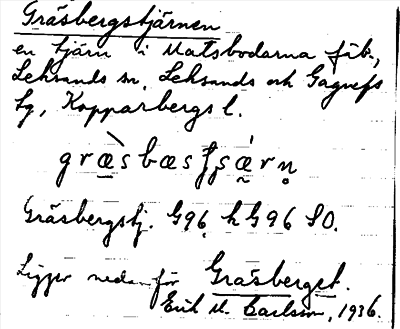 Gräsbergstjärnen
en tjärn i Matsbodarna fäb.,
Leksands sn, Leksands och Gagnefs
tg, Kopparbergs l.
Gräsbergstj. G96, h G96 SO.
Ligger nedanför Gräsberget.
Erik M. Carlsson, 1936.